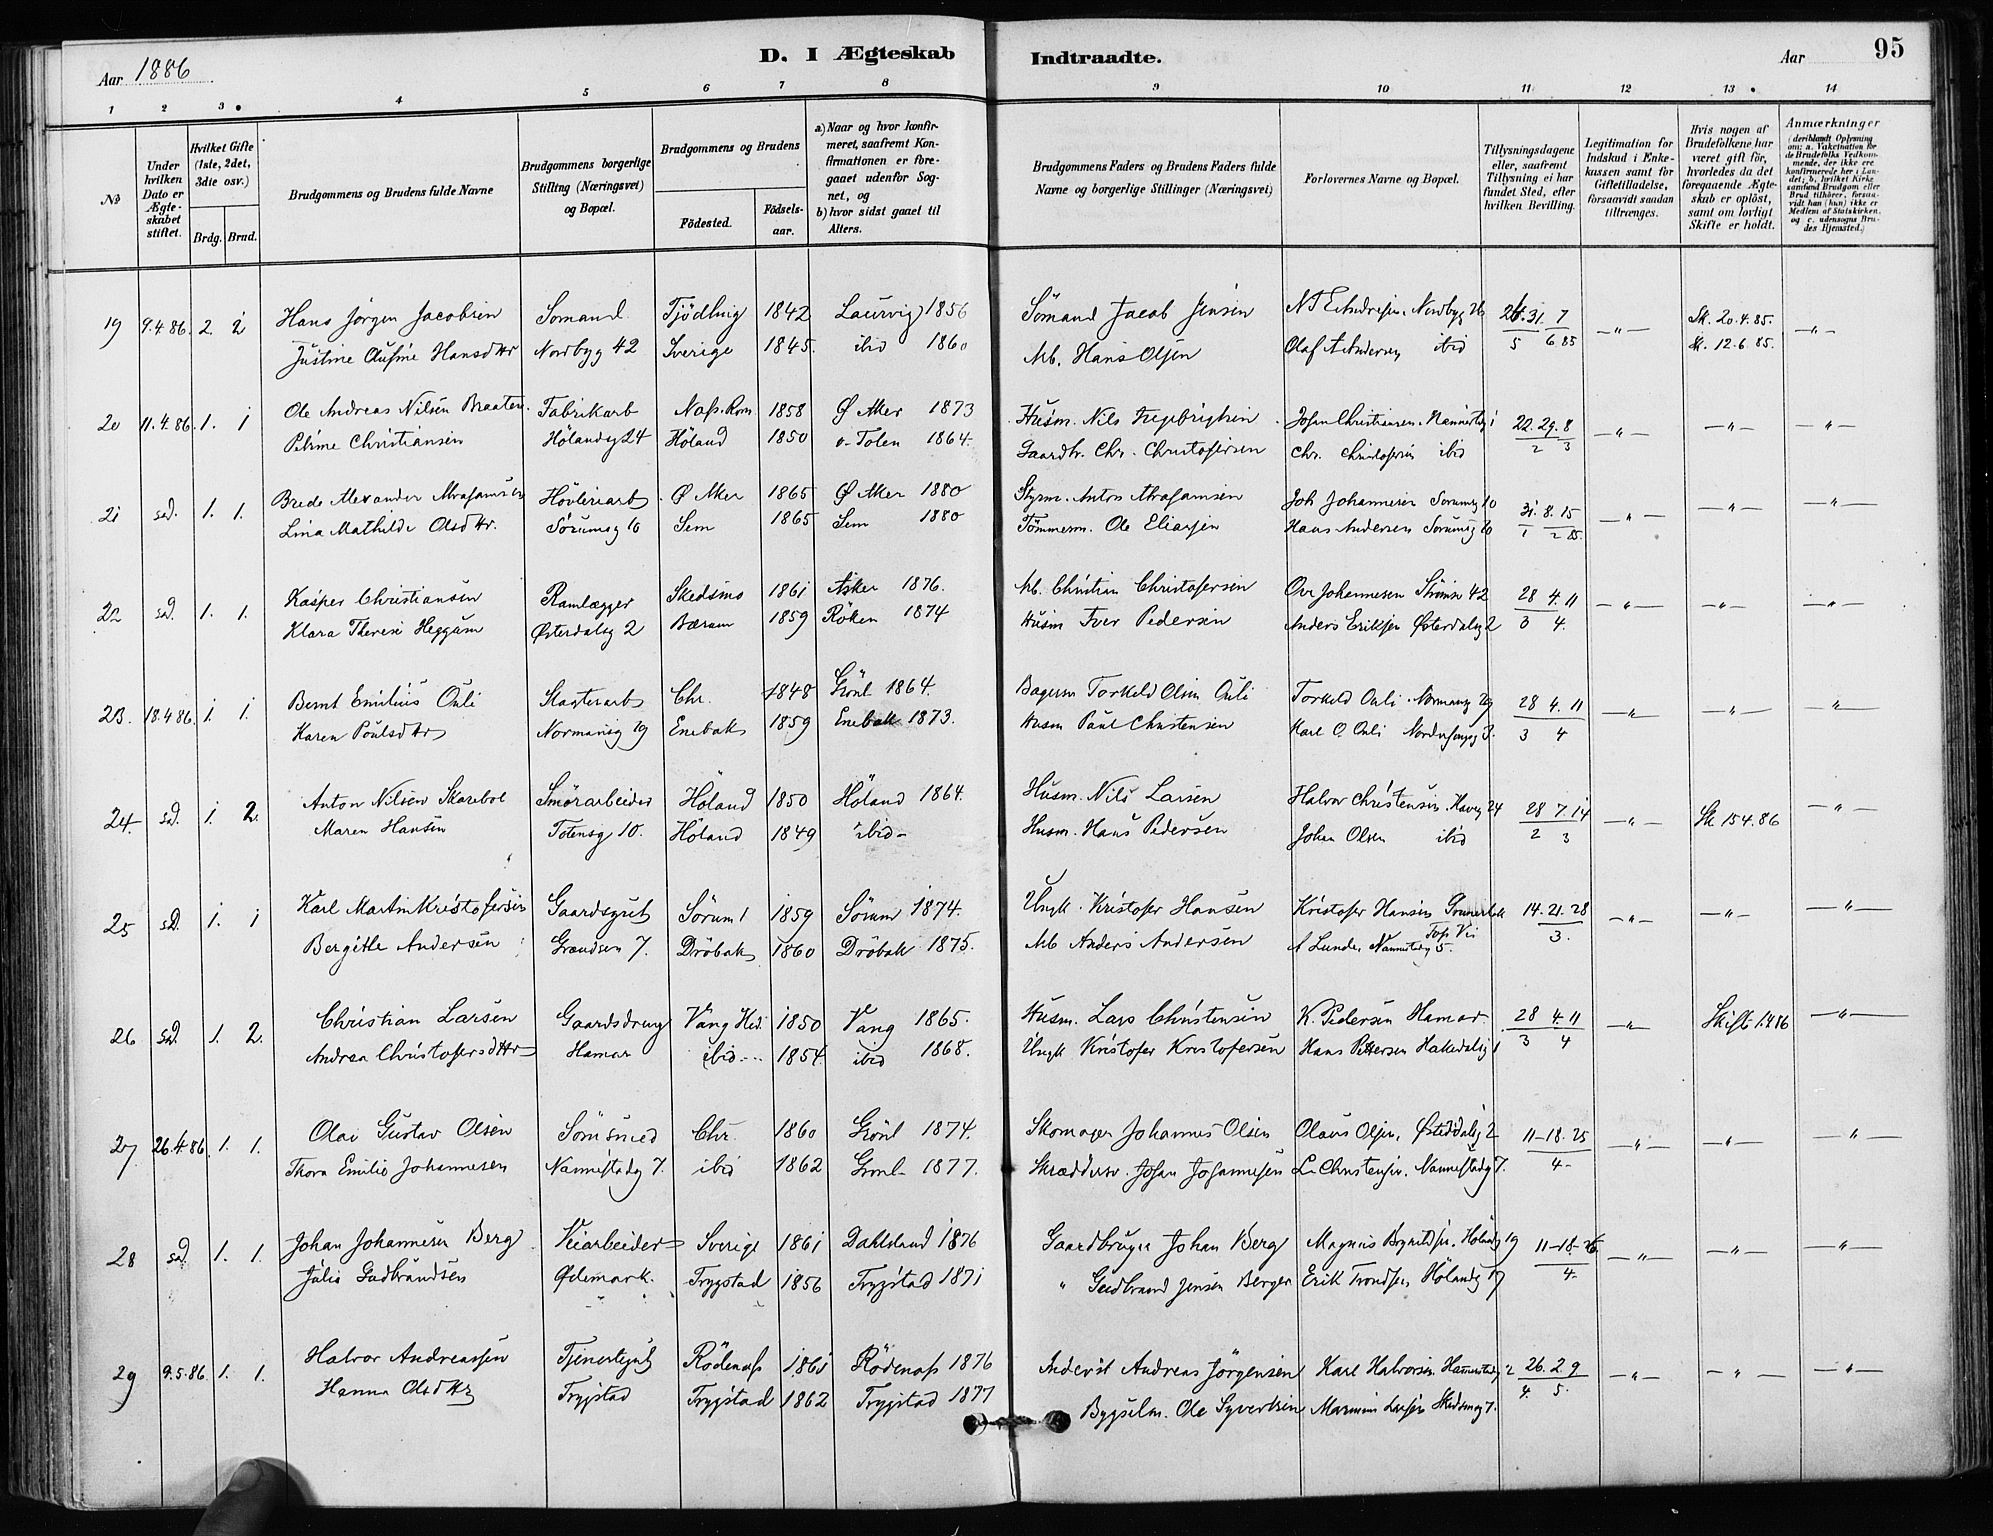 Aar 1886
D. I Ægteskab Indtraadte.
Aar
95
1 2 3 4 5 6 7 8 9 10 11 12 13 14
No
Under hvilken Dato er Ægteskabet stiftet.
Hvilket Gifte (1ste, 2det, 3die osv.)
Brdg. Brud.
Brudgommens og Brudens fulde Navne
Brudgommens borgerlige Stilling (Næringsvei) og Bopæl.
Brudgommens og Brudens
Fødested.
Fødselsaar.
a) Naar og hvor konfirmeret, saafremt Konfirmationen er foregaaet udenfor Sognet, og
b) hvor sidst gaaet til Alters.
Brudgommens Faders og Brudens Faders fulde Navne og borgerlige Stillinger (Næringsvei)
Forlovernes Navne og Bopæl.
Tillysningsdagene eller, saafremt Tillysning ei har fundet Sted, efter hvilken Bevilling.
Legitimation for Indskud i Enkekassen samt for Giftetilladelse, forsaavidt saadan tiltrænges.
Hvis nogen af Brudefolkene har været gift før, hvorledes da det foregaaende Ægteskab er opløst, samt om lovligt Skifte er holdt.
Anmærkninger (deriblandt Oplysning om: a. Vakcination for de Brudefolks Vedkommende, der ikke ere konfirmerede her i Landet; b. hvilket Kirkesamfund Brudgom eller Brud tilhører, forsaavidt han (hun) ikke er Medlem af Statskirken, og c. udensogns Brudes Hjemsted.)
19 9.4.86. 2. 2 Hans Jørgen Jacobsen Sømand Tjødling 1842 Laurvig 1856 Sømand Jacob Jensen Nordbyg 31. 7 —"— Sk. 20.4.85. —"—
Justine Olufine Hansdttr Nordbyg 42 Sverige 1845. ibid 1860 Arb. Hans Olsen Olaf A Andersen ibid 5 6 85 Sk. 12.6.85.
20 11.4.86. 1. 1 Ole Andreas Nilsen Braaten Fabrikarb Næs. Rom. 1858 Ø Aker 1873 Husm. Nils Ingebrigtsen Johan Christiansen 22. 29. 8 —"— —"— —"—
Petrine Christiansen Hølandsg 24 Høland 1850 1864. Gaardbr. Chr. Christofersen Chr. Christofersen ibid 2 3
21 sad. 1. 1. Brede Alexander Abrahamsen Høvleriarb Ø Aker 1865 Ø Aker 1880 Styrm. Anton Abrahamsen Joh Johannesen Sørumsg 10 31. 8. 15 —"— —"— —"—
Lina Mathilde Olsdttr. Sørumsg 10 Sem 1865 Sem 1880 Tømmerm. Ole Eliassen Hans Andersen Sørumsg 1 2 85.
22 sad. 1. 1. Kasper Christiansen Ramlægger Skedsmo 1861 Asker 1876. Arb. Christian Christofersen Ove Johannesen 42 28 4. 11 —"— —"— —"—
Klara Therese Heggum Østerdalsg 2 Bærum 1859 Røken 1874 Husm Iver Pedersen Anders Eriksen Østerdalsg 2 3 4.
23. 18.4.86. 1. 1. Bernt Emilius Ouli Slagterarb Chr. 1848 Grønl 1864. Bagerm Torkeld Olsen Ouli Torkeld Ouli Normansg 19 28 4. 11 —"— —"— —"—
Karen Poulsdttr Normansg 19 Enebak 1859 Enebak 1873. Husm Paul Christensen Karl O. Ouli 3. 3 4
24. sad. 1. 2. Anton Nilsen Skarebol Smørarbeider Høland 1850 Høland 1864. Husm. Nils Larsen Halvor Christensen 24 28 7. 14 —"— Sk 15 4.86 —"—
Maren Hansen Totensg 10. Høland 1849 ibid— Husm. Hans Pedersen Johan Olsen ibid 2 3
25 sad. 1. 1 Karl Martin Kristofersen Gaardsgut Sørum 1859 Sørum 1874. Ungk. Kristofer Hansen Kristofer Hansen 14. 21. 28 —"— —"— —"—
Bergitte Andersen Grændsen 7. Drøbak 1860 Drøbak 1875. Arb Anders Andersen A Lunde, Nannestadg 5. 3.
26 sad. 1. 2. Christian Larsen Gaardsdreng Vang Hed. 1850 Vang 1865. Husm. Lars Christensen K. Pedersen Hamar. 28 4. 11 —"— Skifte 1.4.86 —"—
Andrea Christofersdttr Hamar ibid 1854. ibid 1868. Ungk Kristofer Kristofersen Hans Pettersen Hakedalsg 1 3 4
27 26.4.86. 1. 1. Olai Gustav Olsen Sømsmed Chr. 1860 Grønl 1874. Skomager Johannes Olsen Olaus Olsen, Østerdalsg 2 11—18. 25 —"— —"— —"—
Thora Emilie Johannesen Nannestadg 7. ibid 1862 Grønl 1877. Skræddersv. Johan Johannesen L. Christensen, Nannestadg 7. 4.
28 sad. 1. 1. Johan Johannesen Berg Veiarbeider Sverige 1861 Dahlsland 1876 Gaardbruger Johan Berg Magnus Hølandsg 19 11—18. —"— —"— —"—
Julie Gudbrandsen Ødemark. Trygstad 1856 Trygstad 1871 " Gudbrand Jensen Berger Erik Trondsen, Hølandsg 17 4.
29 9.5.86. 1. 1. Halvor Andreassen Tjenestegut Rødenæs 1861 Rødenæs 1876 Inderst Andreas Jørgensen Karl Halvorsen 2 26. 2. 9 —"— —"— —"—
Hanna Olsdttr Trygstad Trygstad 1862 Trygstad 1877 Bygselm. Ole Syvertsen Skedsmog 7. 4. 5.